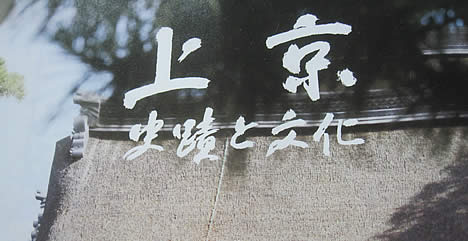 上京
史蹟と文化